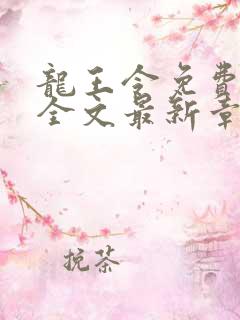 龍王令免費
全文最新章
挽茶